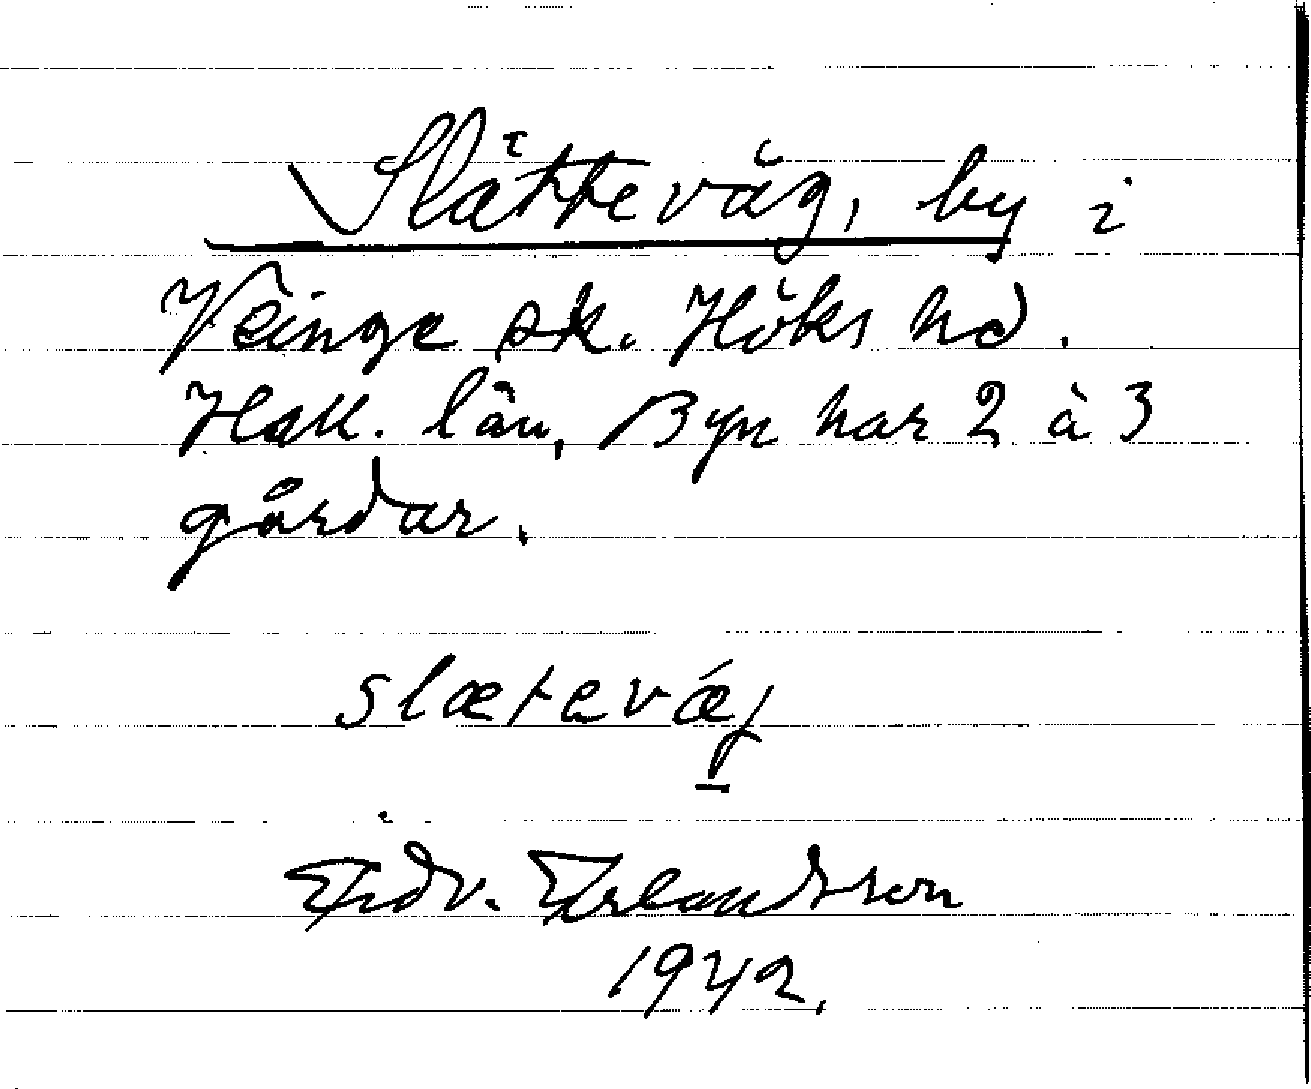 Slätteväg, by i
Veinge sk. Höks hd.
Hall. län, Byn har 2 à 3
gårdar.
slætevǽg
Fridv. Erlandsson
1942.